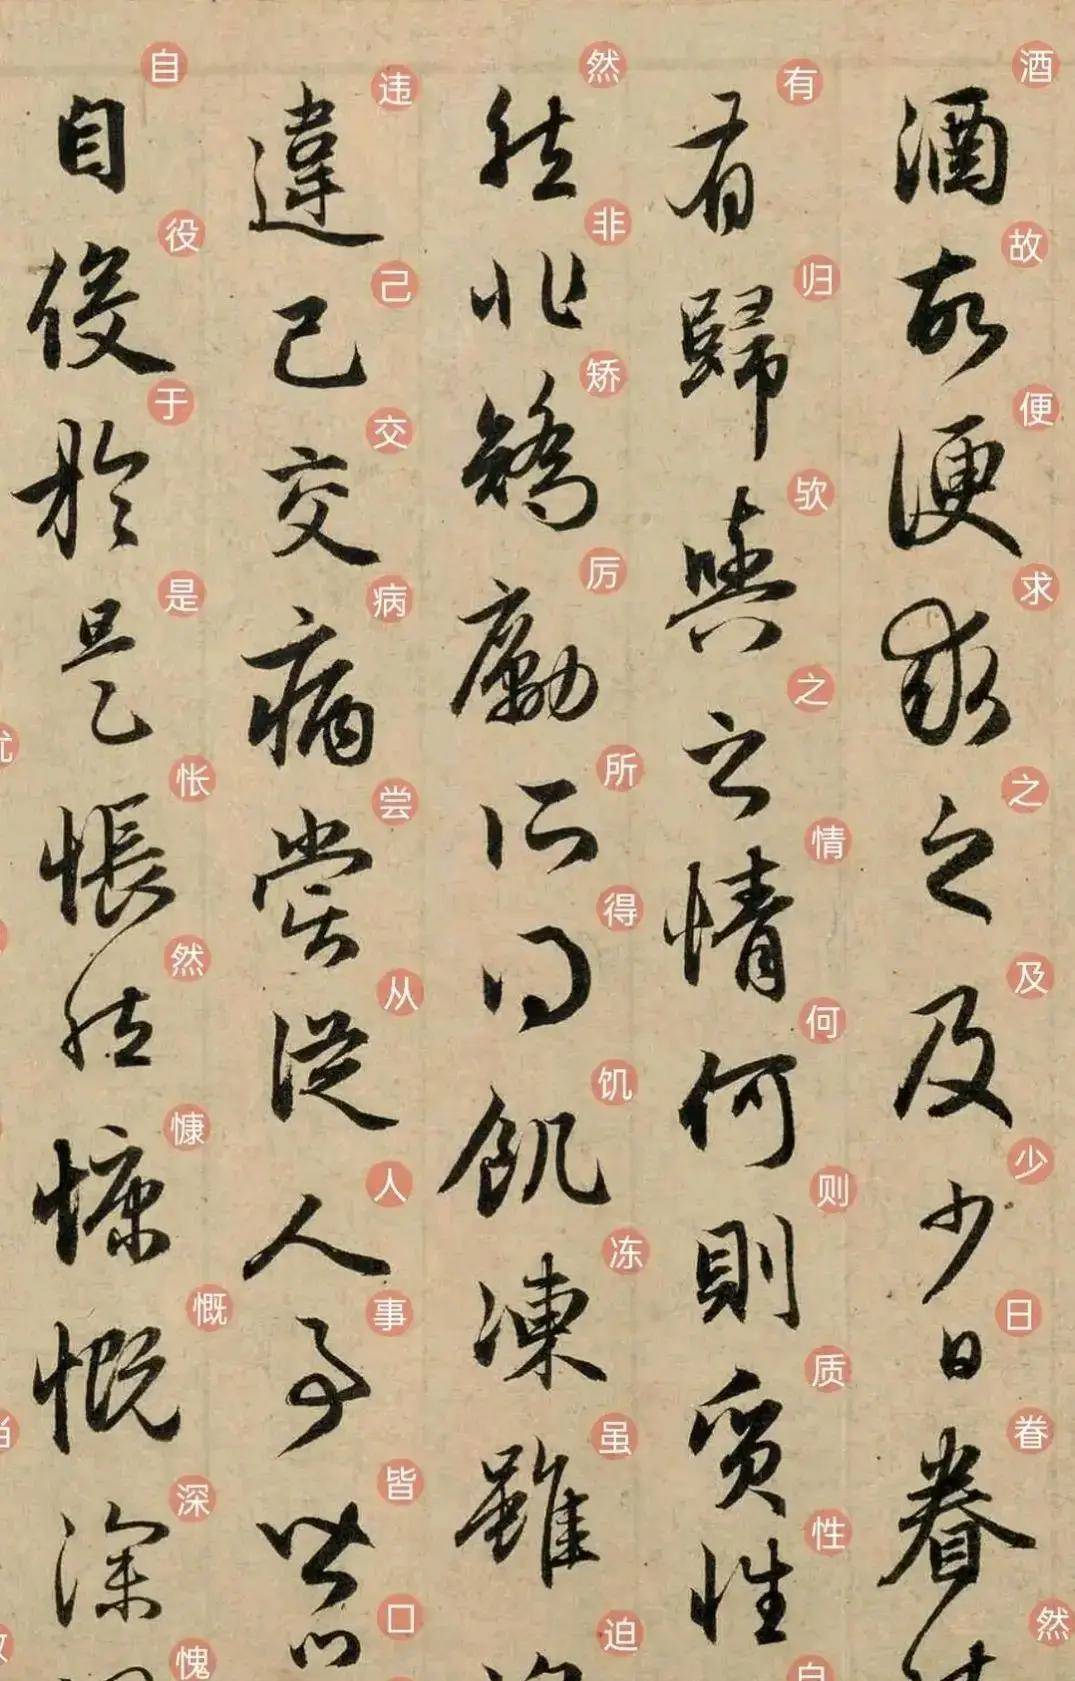 酒故便求之及少日眷然
酒故便求之及少日眷
有归欤之情何则质性自
有歸與之情何則質性
然非矫厉所得饥冻虽迫
然非矯勵所得飢凍雖
违己交病尝从人事皆口
違己交病嘗從人事皆口
自役于是怅然慷慨深愧
自役於是悵然慷慨深